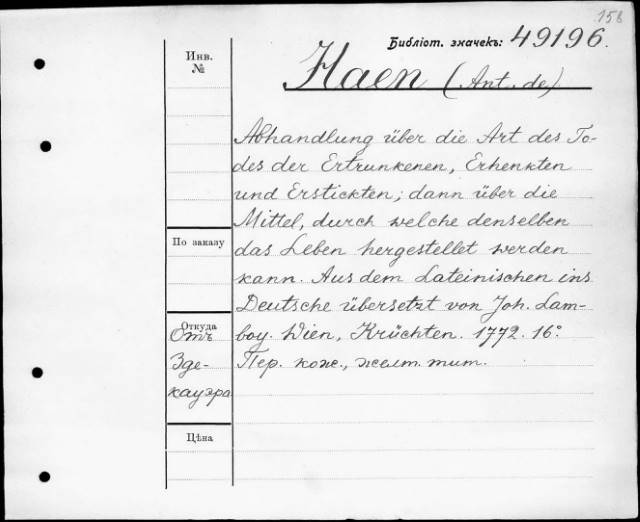 158
Библіот. значекъ: 49196.
Инв.
№
Haen (Ant. de)
Abhandlung über die Art des To-
des der Ertrunkenen, Erhenkten
und Erstickten; dann über die
Mittel, durch welche denselben
По заказу
das Leben hergestellet werden
kann. Aus dem Lateinischen ins
Deutsche übersetzt von Joh. Lam-
Откуда
Отъ
boy. Wien, Krüchten. 1772. 16°.
Зде-
Пер. кож., желт. тит.
кауэра
Цѣна